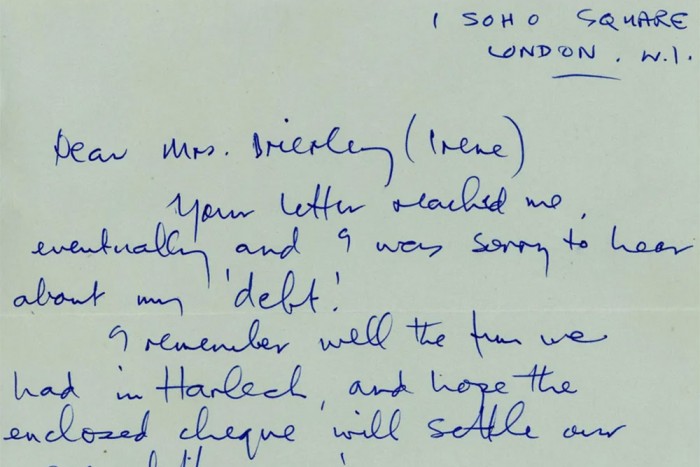 1 SOHO SQUARE
LONDON. W.1.
Dear Mrs. Brierley (Irene)
Your letter reached me,
eventually and I was sorry to hear
about my 'debt'!
I remember well the fun we
had in Harlech, and hope the
enclosed cheque will settle our